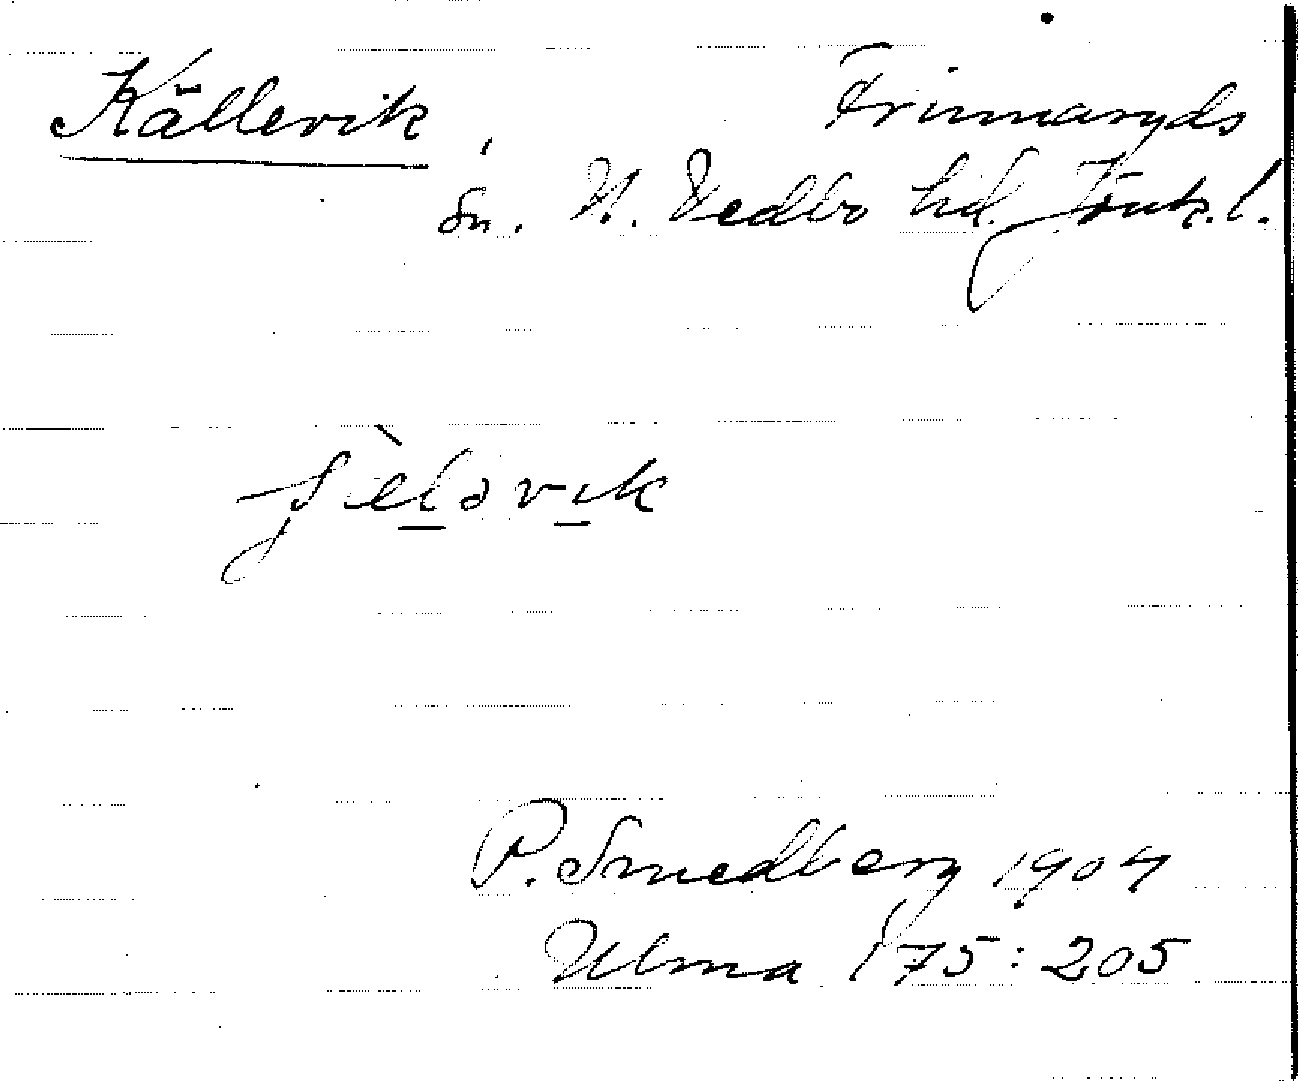 Källevik, Frinnaryds
sn. N. Vedbo hd. Jönk. l.
P. Smedberg 1904
Ulma 175:205